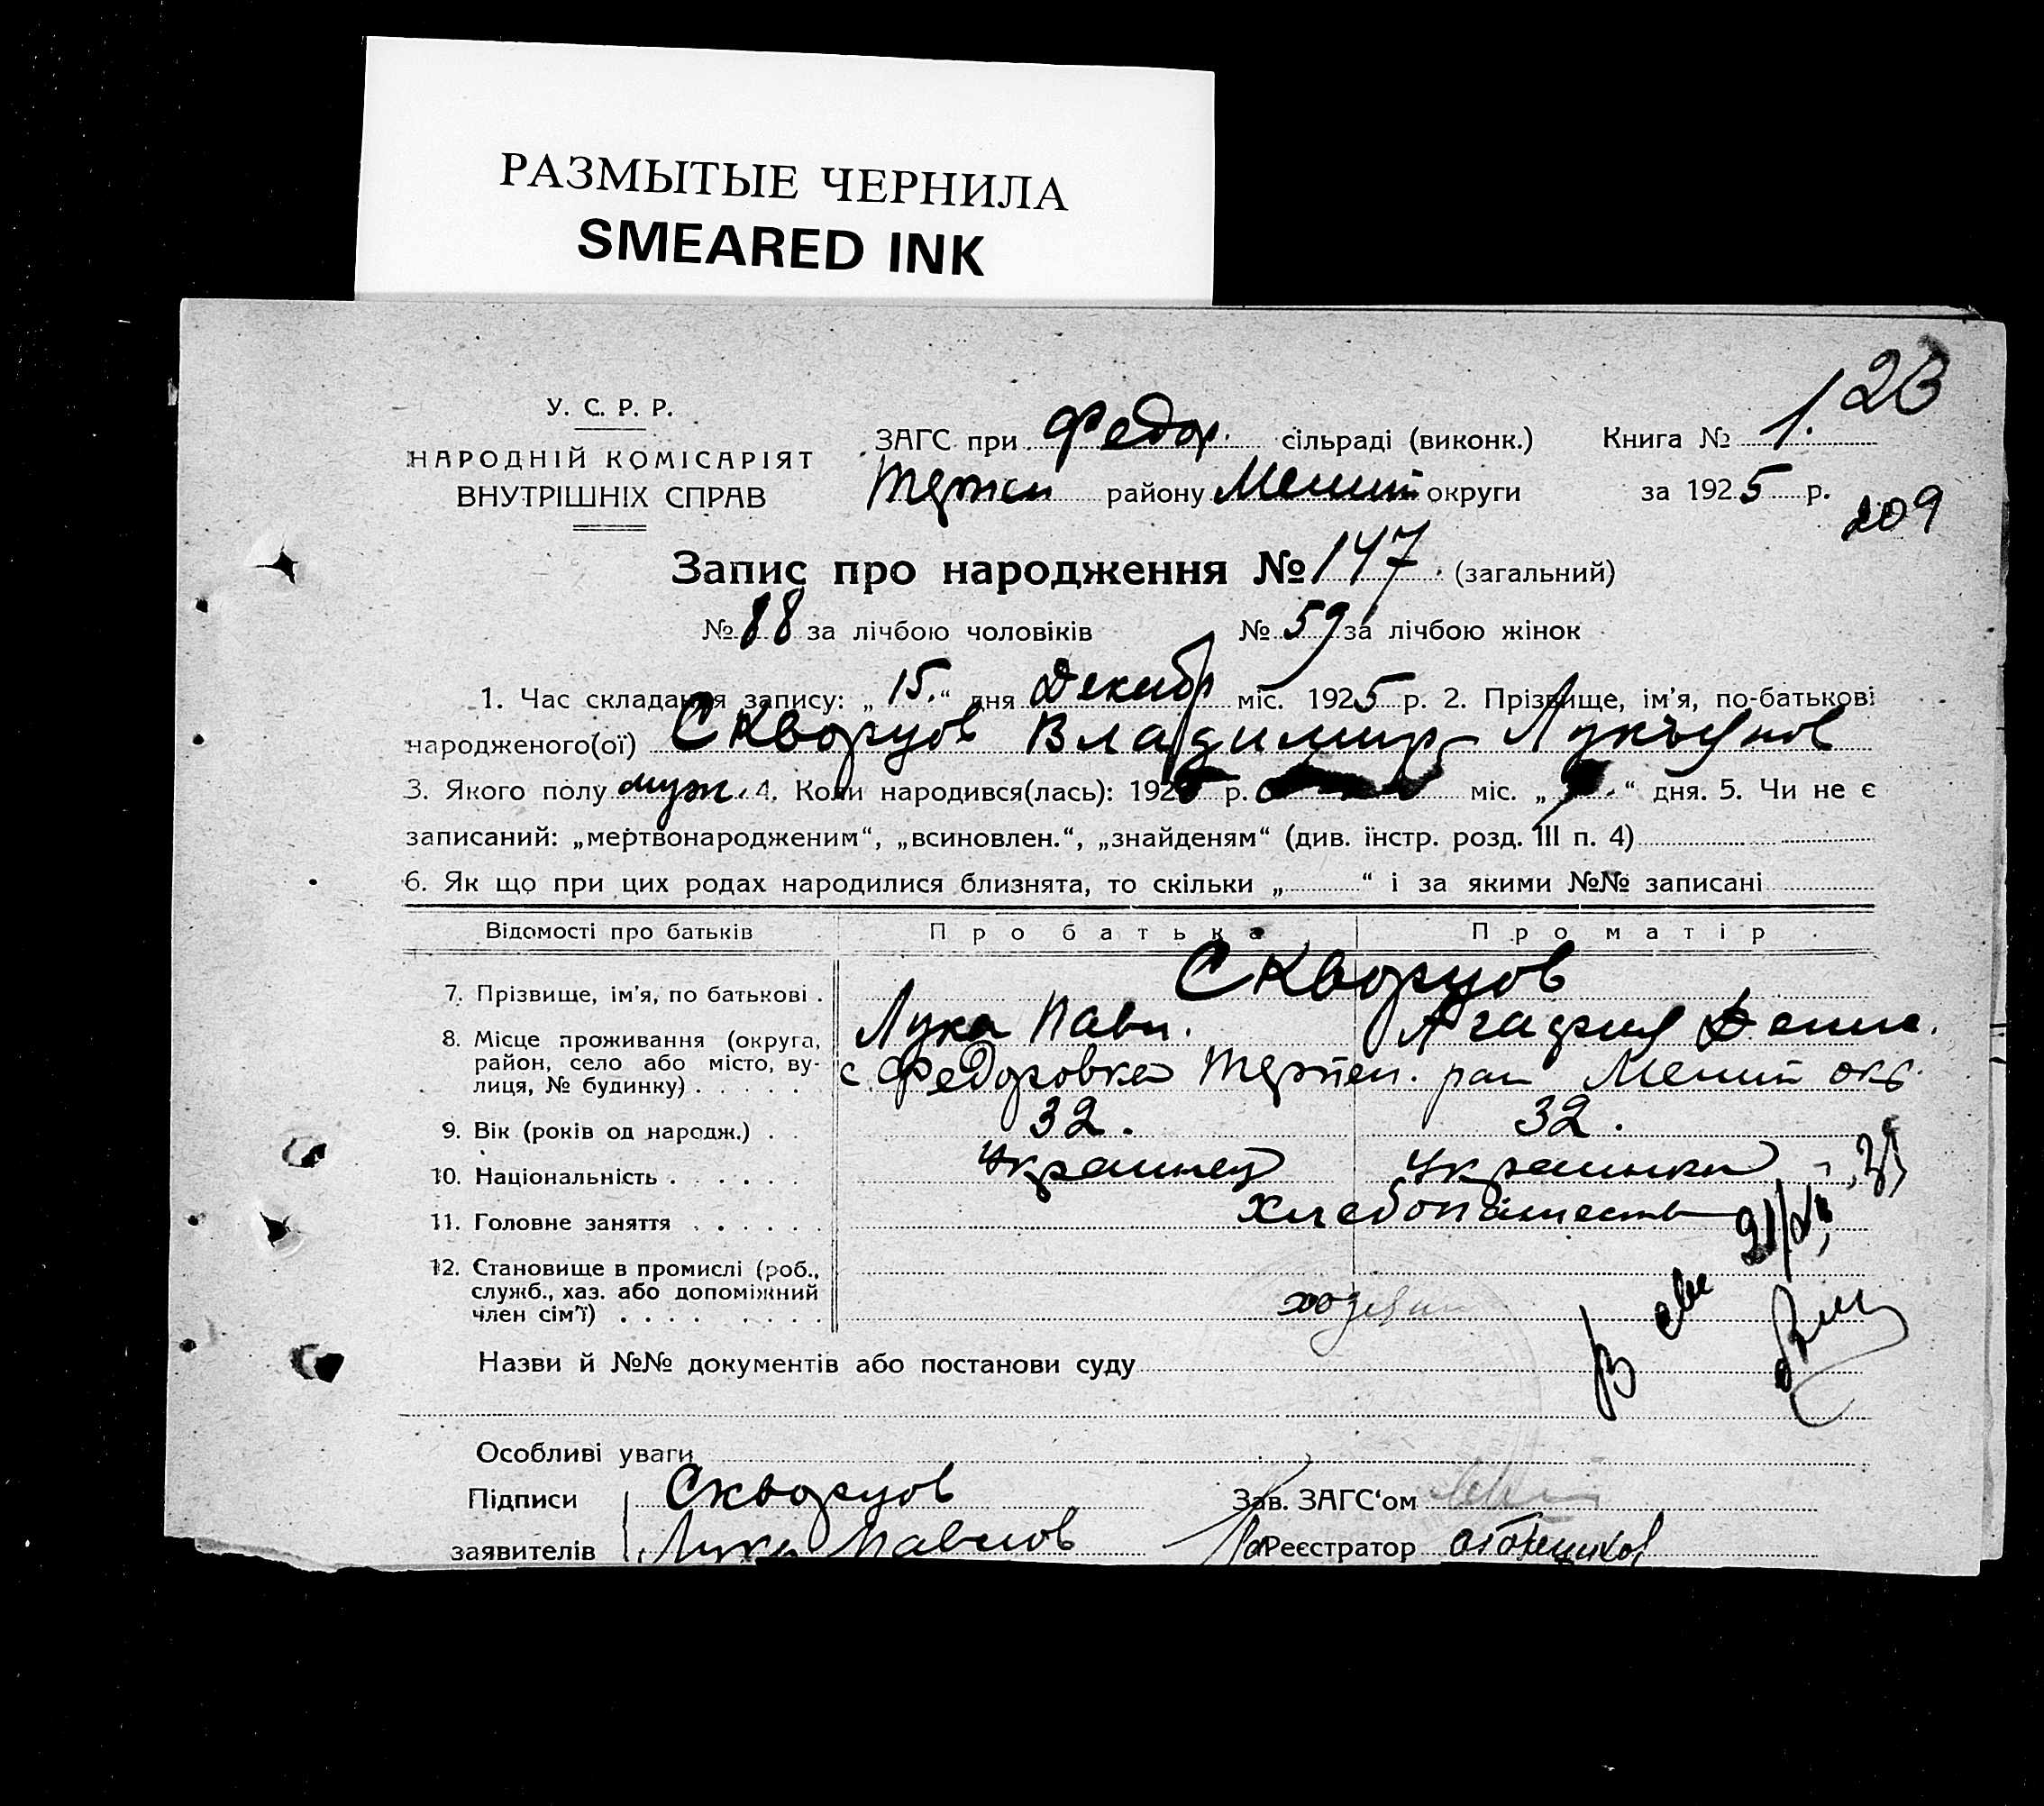 РАЗМЫТЫЕ ЧЕРНИЛА
SMEARED INK
23
У. С. Р. Р.
НАРОДНІЙ КОМІСАРІЯТ
ВНУТРІШНІХ СПРАВ
ЗАГС при Федор. сільраді (виконк.) Книга № 1.
району Мелит округи за 1925 р.
209
Запис про народження № 147. (загальний)
№ 88 за лічбою чоловіків № 59 за лічбою жінок
1. Час складання запису: „15.“ дня Декабр міс. 1925 р. 2. Прізвище, ім'я, по-батькові
народженого(ої) Скворцов Владимир Лукъянов
3. Якого полу муж. 4. Коли народився(лась): 192 р. міс. „ “ дня. 5. Чи не є
записаний: „мертвонародженим“, „всиновлен.“, „знайденям“ (див. інстр. розд. III п. 4)
6. Як що при цих родах народилися близнята, то скільки „ “ і за якими №№ записані
Відомості про батьків Про батька Про матір
7. Прізвище, ім'я, по батькові . Скворцов
Лука Павл. Агафия Денис.
8. Місце проживання (округа, район, село або місто, вулиця, № будинку) . . . . . с. Федоровка Терпен. рай Мелит окр.
9. Вік (років од народж.) . . 32. 32.
10. Національність . . . . . . Украинец Украинка
11. Головне заняття . . . . . . Хлебопашество
12. Становище в промислі (роб.,
служб., хаз. або допоміжний
член сім'ї) . . . . . . . . .
Назви й №№ документів або постанови суду
Особливі уваги
Підписи Скворцов Зав. ЗАГС‘ом
заявителів Лука Павлов Реєстратор